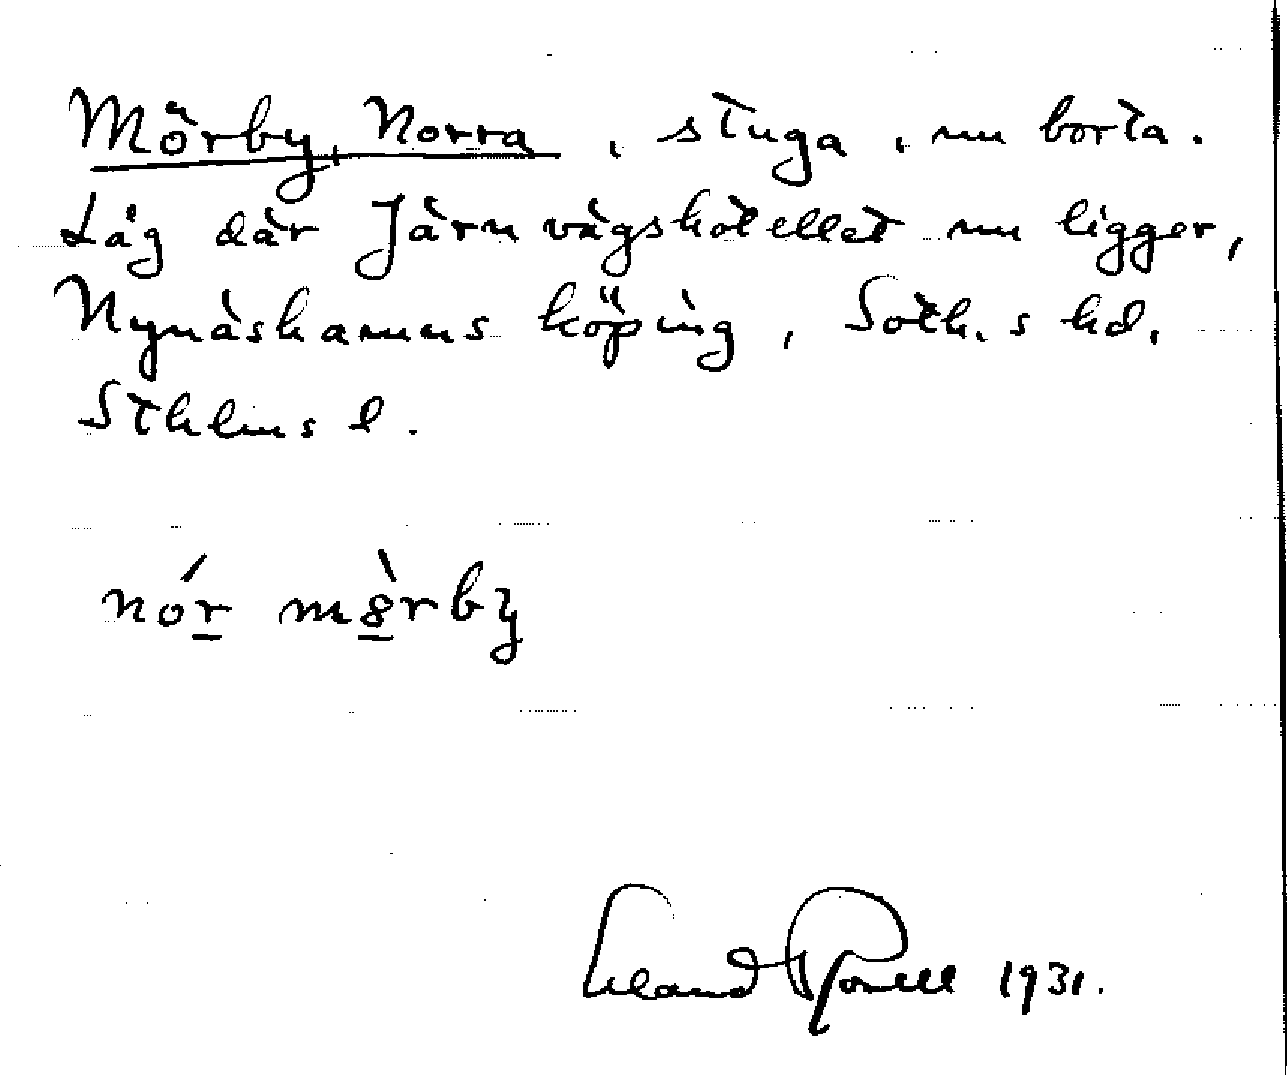 Mörby, Norra, stuga, nu borta.
Låg där Järnvägshotellet nu ligger,
Nynäshamns köping, Soth.s hd.
Sthlms l.
nór mè̱rby
1931.